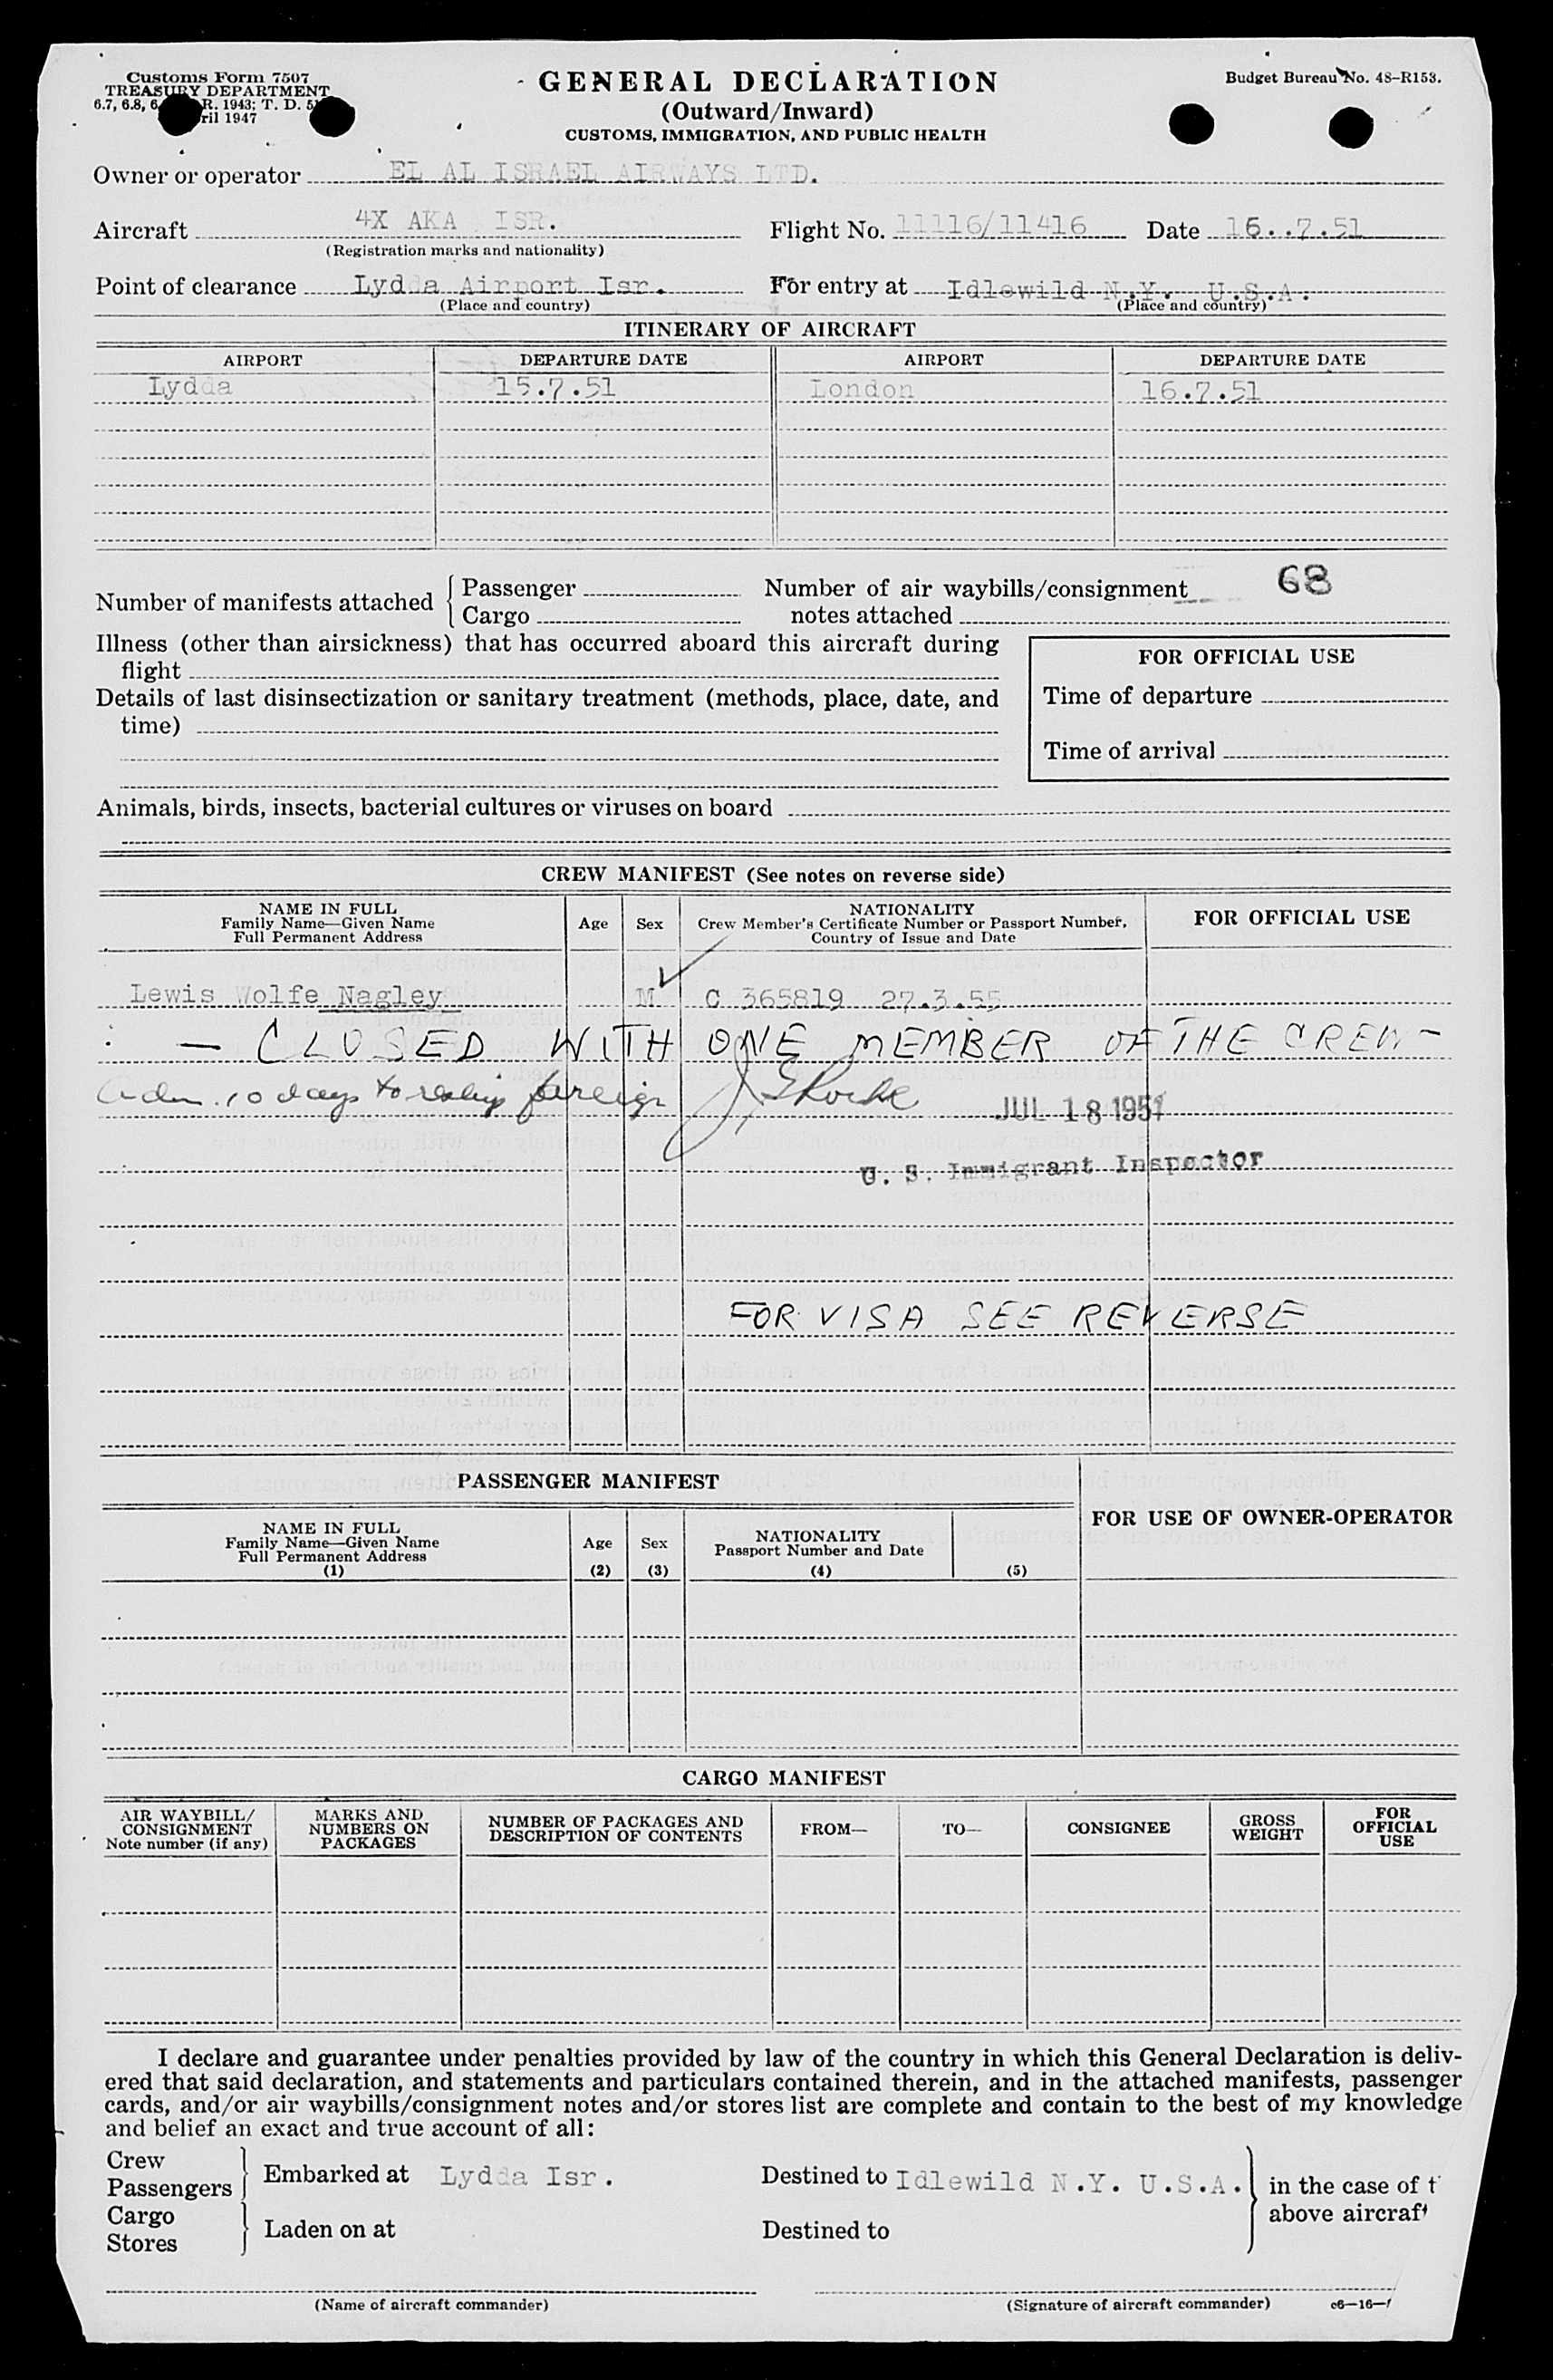 Customs Form 7507
TREASURY DEPARTMENT
6.7, 6.8, 6. R. 1943; T. D. 5
ril 1947
GENERAL DECLARATION
(Outward/Inward)
CUSTOMS, IMMIGRATION, AND PUBLIC HEALTH
Budget Bureau No. 48–R153.
Owner or operator EL AL ISRAEL AIRWAYS LTD.
Aircraft 4X AKA ISR. Flight No. 11116/11416 Date 16..7.51
(Registration marks and nationality)
Point of clearance Lydda Airport Isr. For entry at Idlewild N.Y. U.S.A.
(Place and country) (Place and country)
ITINERARY OF AIRCRAFT
AIRPORT DEPARTURE DATE AIRPORT DEPARTURE DATE
Lydda 15.7.51 London 16.7.51
Number of manifests attached { Passenger Number of air waybills/consignment 68
Cargo notes attached
Illness (other than airsickness) that has occurred aboard this aircraft during
flight
FOR OFFICIAL USE
Details of last disinsectization or sanitary treatment (methods, place, date, and
time)
Time of departure
Time of arrival
Animals, birds, insects, bacterial cultures or viruses on board
CREW MANIFEST (See notes on reverse side)
NAME IN FULL
Family Name—Given Name
Full Permanent Address
Age
Sex
NATIONALITY
Crew Member's Certificate Number or Passport Number,
Country of Issue and Date
FOR OFFICIAL USE
Lewis Wolfe Nagley M C 365819 27.3.55
— CLOSED WITH ONE MEMBER OF THE CREW —
Adm. 10 days to reship foreign
JUL 18 1951
U. S. Immigrant Inspector
FOR VISA SEE REVERSE
PASSENGER MANIFEST
FOR USE OF OWNER-OPERATOR
NAME IN FULL
Family Name—Given Name
Full Permanent Address
(1)
Age
(2)
Sex
(3)
NATIONALITY
Passport Number and Date
(4)
(5)
CARGO MANIFEST
AIR WAYBILL/
CONSIGNMENT
Note number (if any)
MARKS AND
NUMBERS ON
PACKAGES
NUMBER OF PACKAGES AND
DESCRIPTION OF CONTENTS
FROM—
TO—
CONSIGNEE
GROSS
WEIGHT
FOR
OFFICIAL
USE
I declare and guarantee under penalties provided by law of the country in which this General Declaration is deliv-
ered that said declaration, and statements and particulars contained therein, and in the attached manifests, passenger
cards, and/or air waybills/consignment notes and/or stores list are complete and contain to the best of my knowledge
and belief an exact and true account of all:
Crew
Passengers
Embarked at Lydda Isr. Destined to Idlewild N.Y. U.S.A.
Cargo
Stores
Laden on at Destined to
in the case of t
above aircraf
(Name of aircraft commander) (Signature of aircraft commander) c6—16—